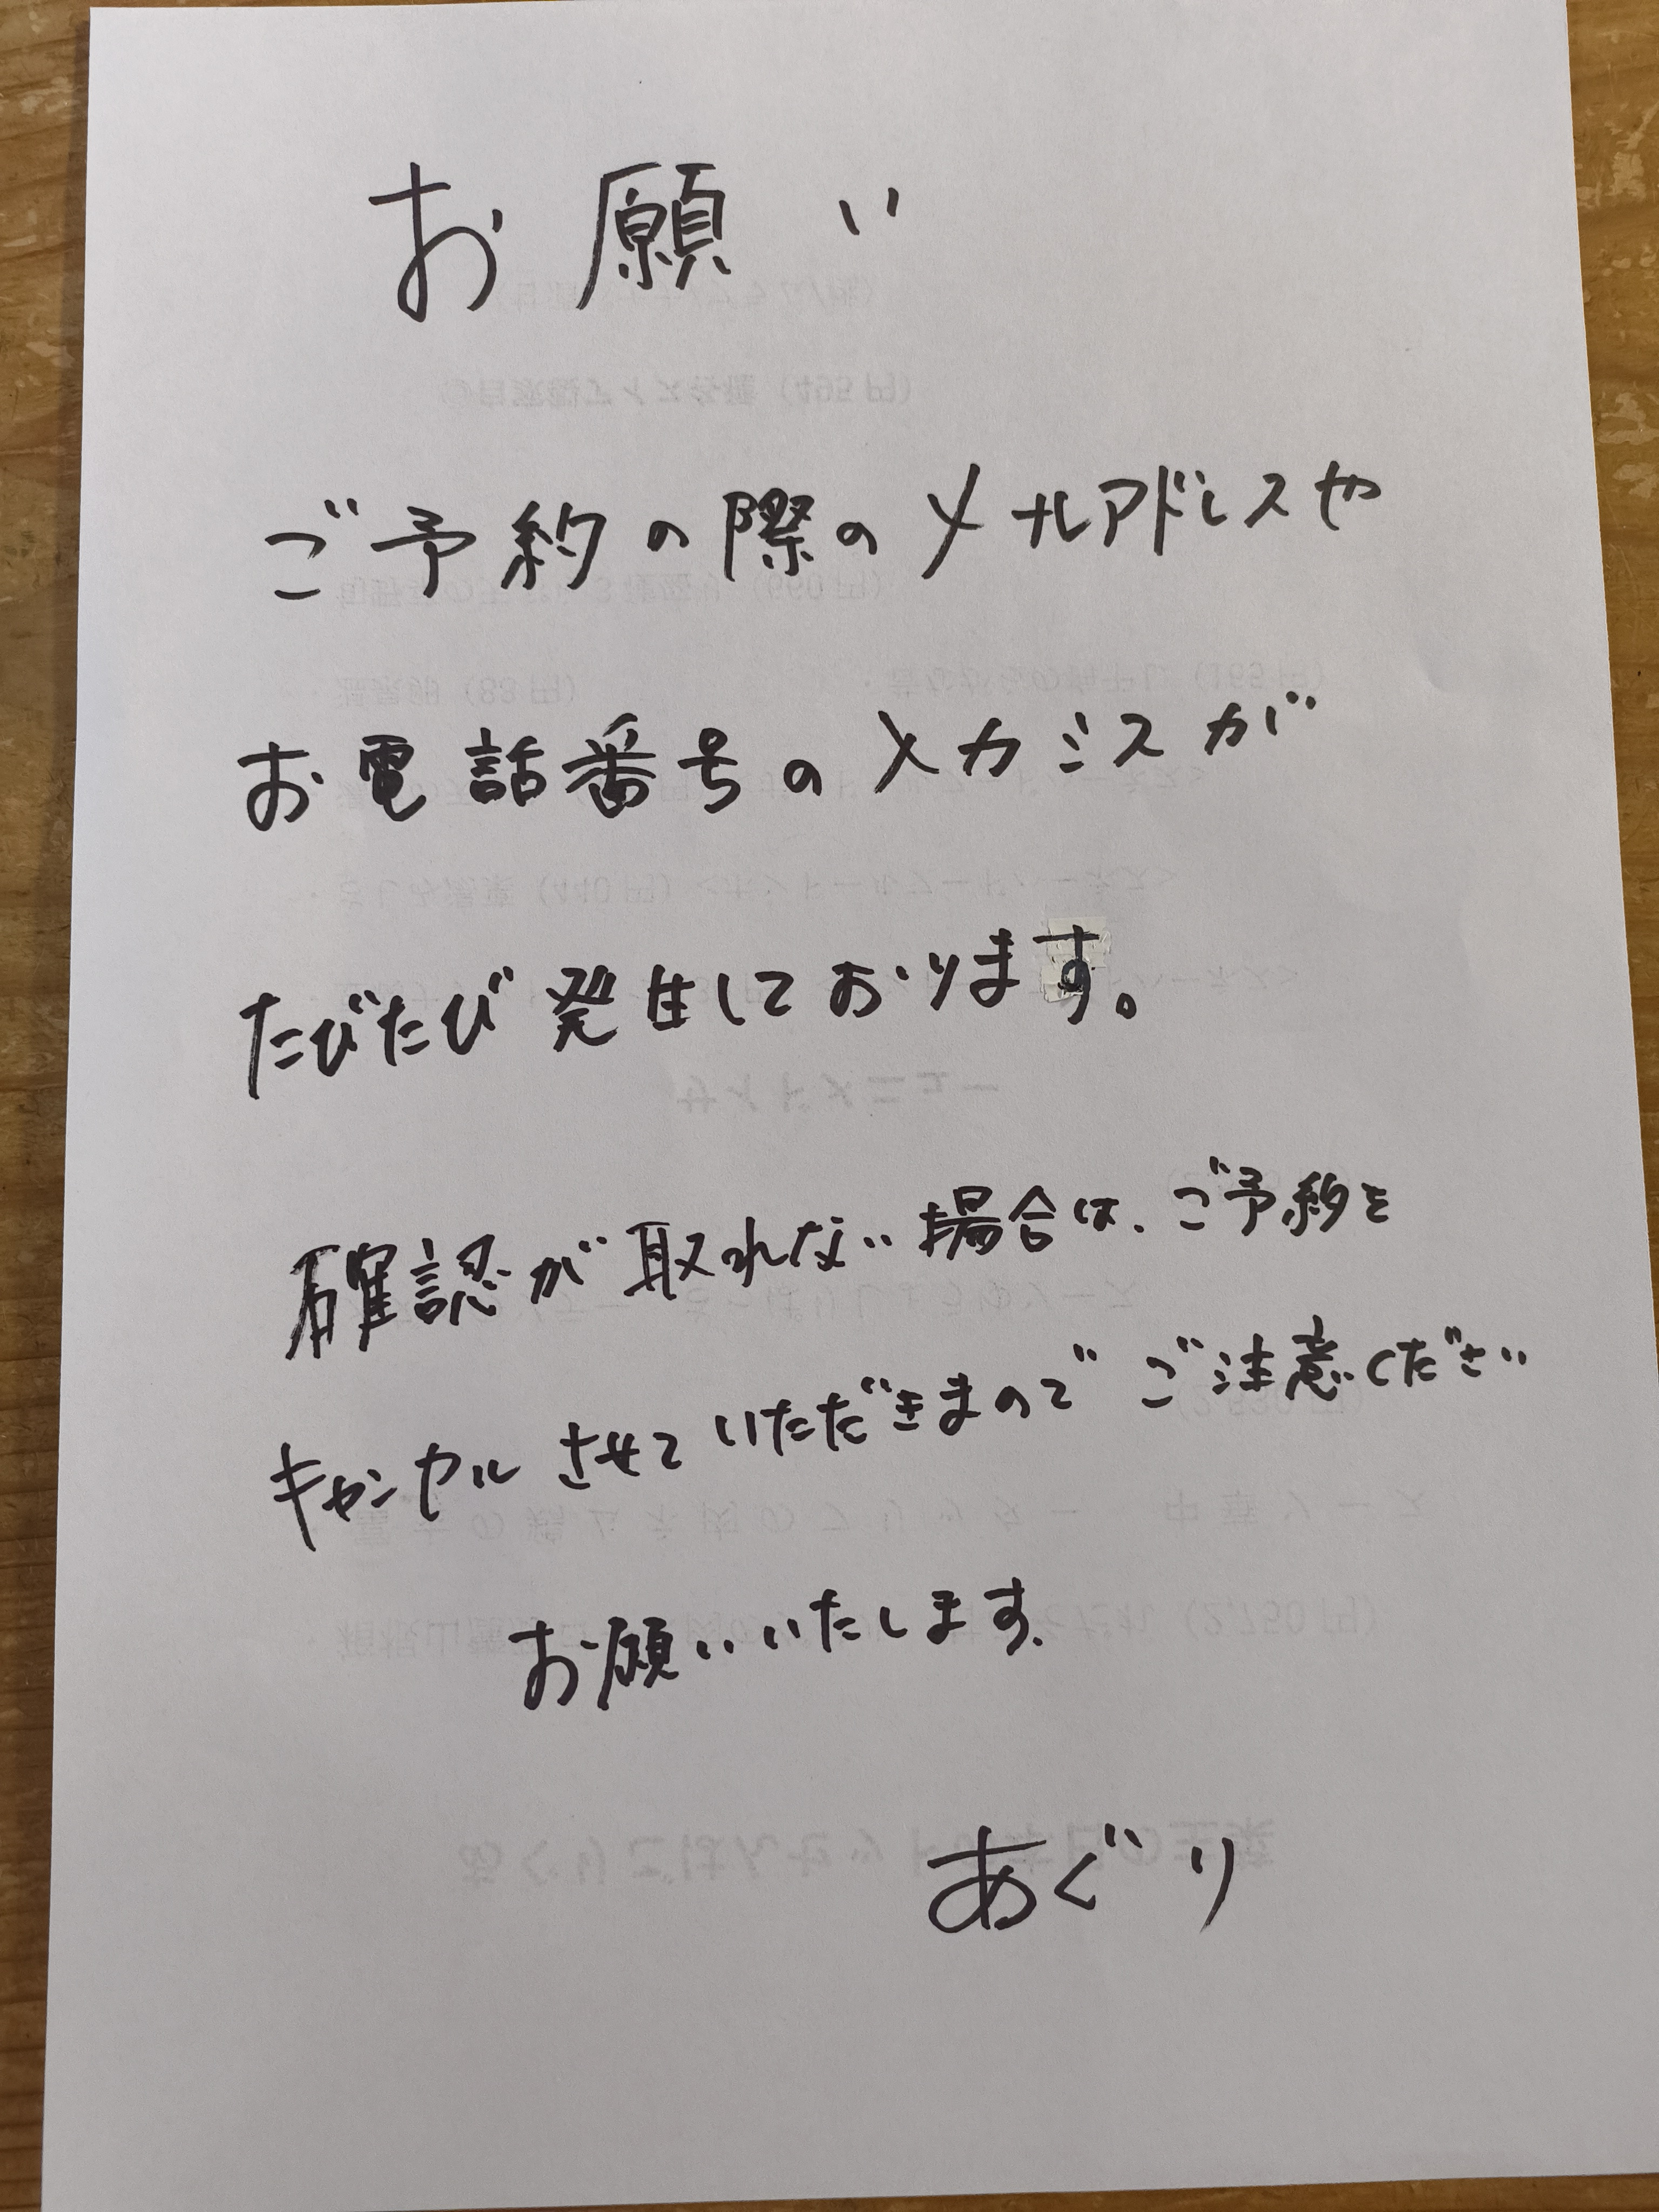 お願い
ご予約の際のメールアドレスや
お電話番号の入力ミスが
たびたび発生しております。
確認が取れない場合は、ご予約を
キャンセルさせていただきまので ご注意ください
お願いいたします。
あぐり